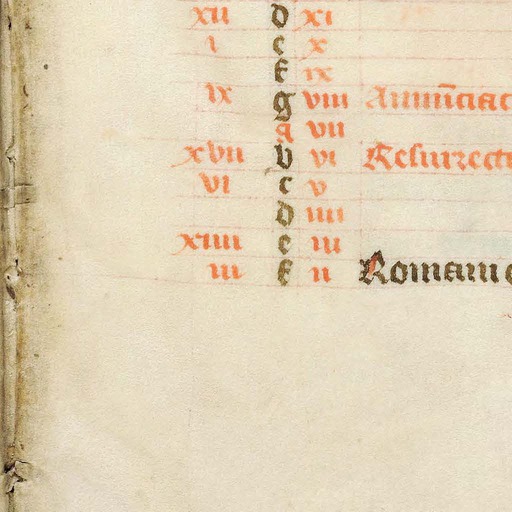 xii d xi
i e x
f ix
ix g viii Anun̄ciac
a vii
xvii b vi Resurrect
vi c v
d iiii
xiiii e iii
iii f ii Romani e